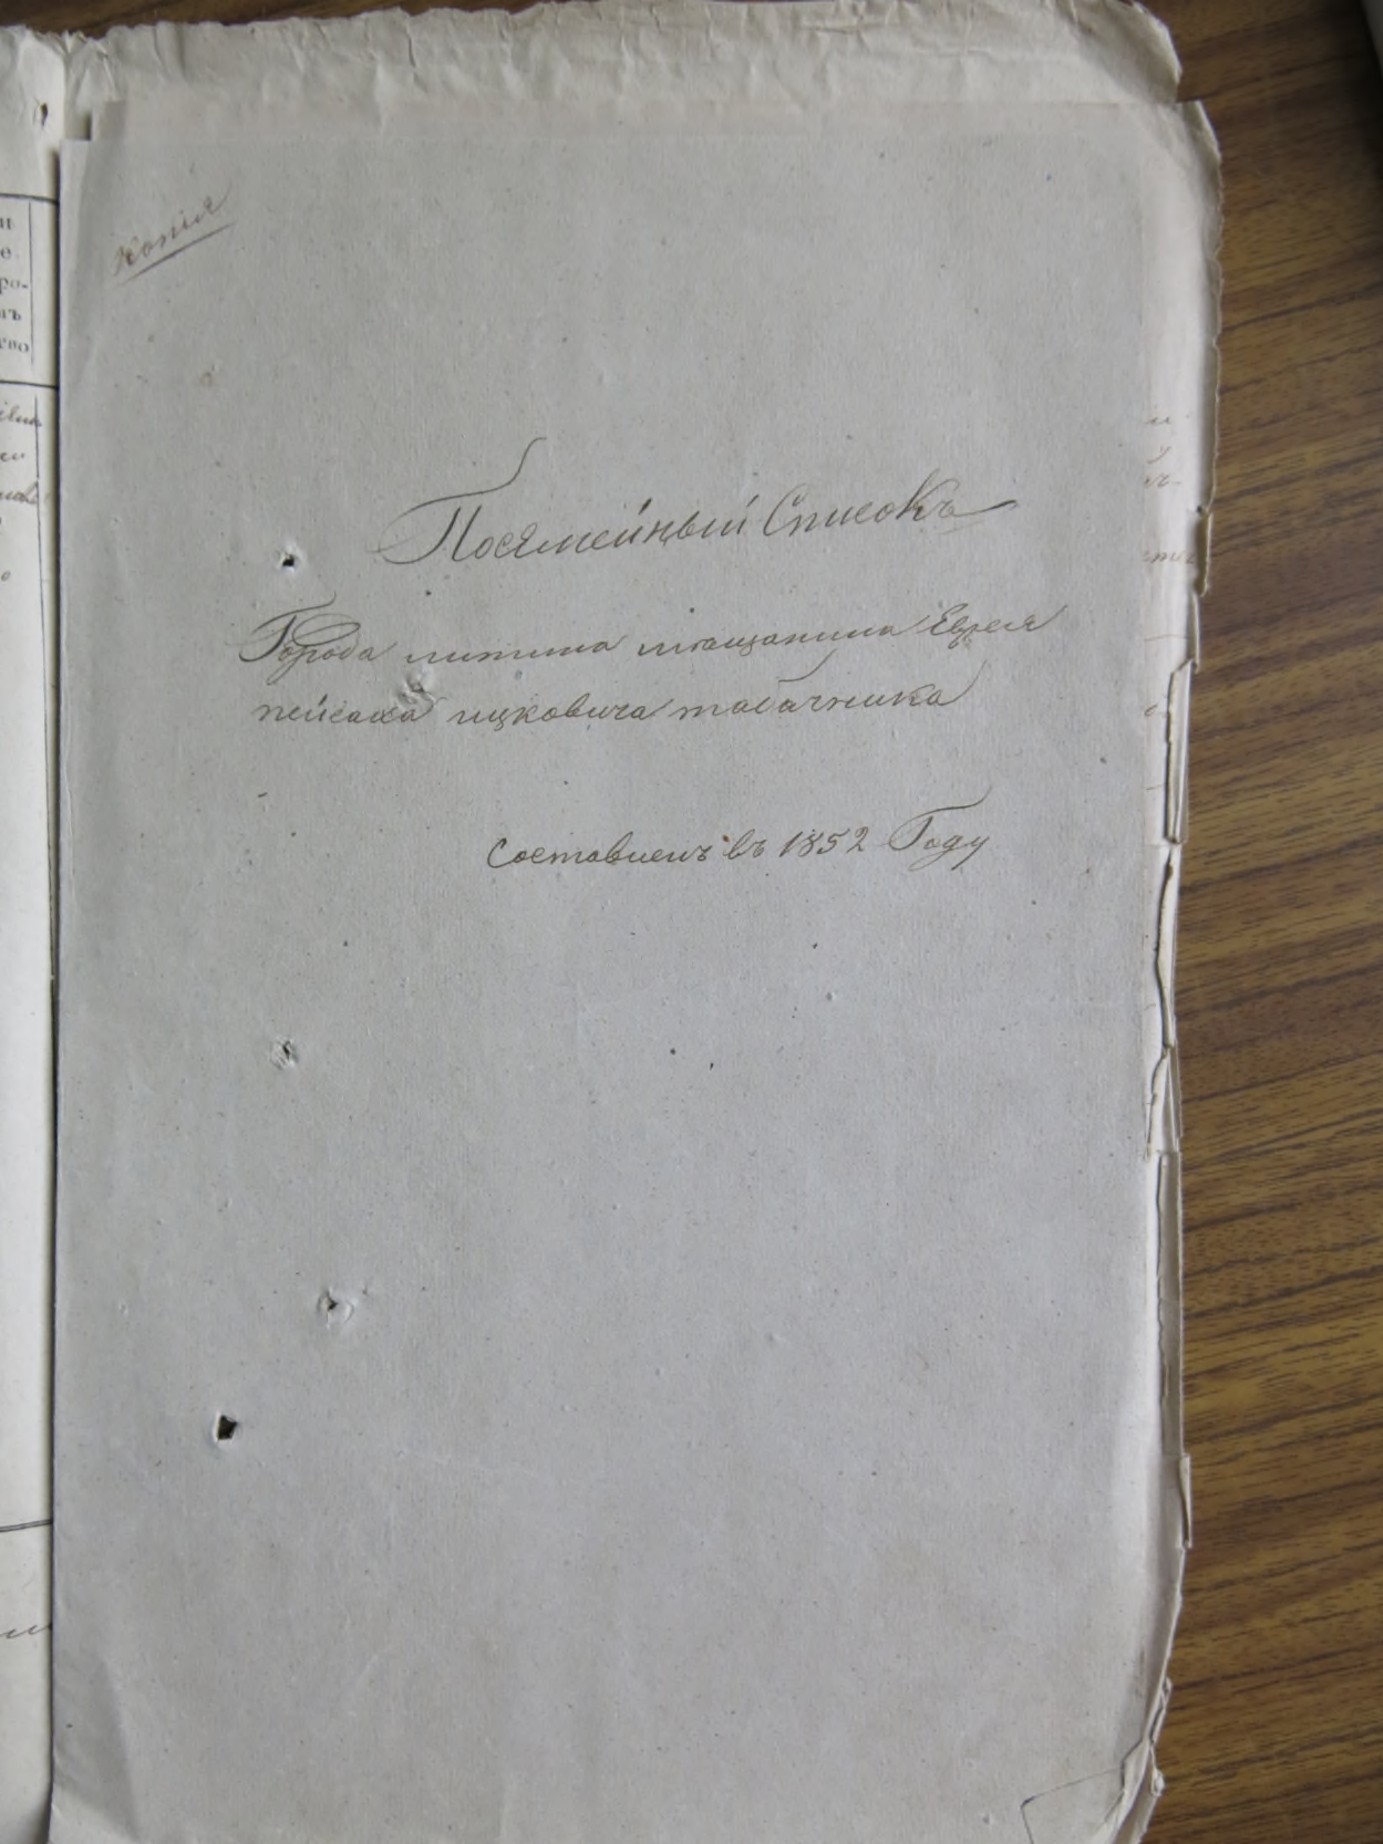 Копія
Посемейный Списокъ
Города литина мещанина Еврея
пейсаха ицковича табачника
Составленъ въ 1852 Году